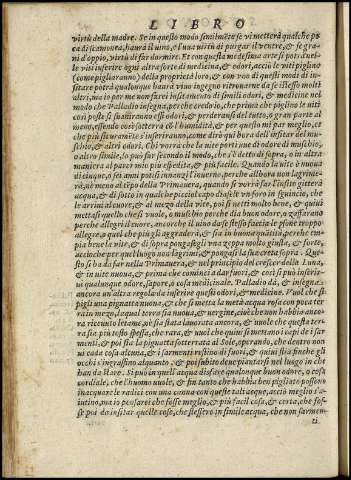 LIBRO
virtù della madre. Se in questo modo similmēte se vi metterà qualche po
ca di scamonea, haurà il vino, e l'uua virtù di purgar il ventre, & se gra
ni d'oppio, virtù di far dormire. Et con questa medesima arte si può
le viti inserire ogni altra sorte di medicina, & odori, acciò le viti piglino
(come pigliaranno) della proprietà loro, & con vna di questi modi di in-
sitare potrà qualunque haurà viuo ingegno ritrouarne da se istesso molti
altri, ma io per me non farei insitamento di simili odori, & medicine nel
modo che Palladio insegna, perche credo, che prima che piglino le viti
così poste si suaniranno essi odori, & perderansi del tutto, o gran parte al
meno, essendo così sotterra & l'humidità, & per questo mi par meglio, et
che più sicuramēte s'inseriranno, come dirò qui hora dell'insitar del mu-
schio, & altri odori. Chi vorrà che la vite porti vue di odore di muschio,
o altro simile, lo può far secondo il modo, che s'è detto di sopra, o in altra
maniera al parer mio più espedita, & più facile. Quando la vite è nuoua
di cinque, o sei anni poti innanzi l'inuerno, perche allhora non lagrime-
rà, ub meno al tēpo della Primauera, quando si vorrà far l'insito gitterà
acqua, & di sotto in qualche picciol capo da essa le vn foro in sguincio, che
le arriui al cuore, & al mezo della vite, poi si netti molto bene, & quiui
mettasi quello che si vuole, o muschio perche dia buon odore, o zaffarano
perche allegri il cuore, ancorche il vino da se stesso faccia le psone troppo
allegre, o quel che più gli aggrada, & sia in buona quātità, perche em-
pia bene la vite, & di sopra pongasegli vna zeppa molto giusta, & forte,
acciòche per quel luogo non lagrimi, & pongasi la sua creta sopra. Que-
sto si ha da far nella Primauera, & nel principio del crescer della Luna,
& in vite nuoua, & prima che cominci a dar fuori, & così si può inserir
ui qualunque odore, sapore, o cosa medicinale. Palladio dà, & insegna
ancora un'altra regola da inserire questi odori, & medicine. Vuol che si
pigli una pignatta nuoua, & che si metta la metà acqua rosa con poca ter
ra in mezo, la qual terra sia nuoua, & uergine, cioè che non habbia anco-
ra riceuuto letame, nè sia stata lauorata ancora, & uuole che questa ter-
ra sia più tosto spessa, che rara, & uuol che quiui si mettano i capi de i sar
menti, & poi sia la pignatta sotterrata al Sole, operando, che dentro non
ui cada cosa alcuna, & i sarmenti restino di fuori, & quiui stia finche gli
occhi s'ingrassino alquanto, & poi subito deue piantarsi nel luogo in che
han da stare. Si può in quell'acqua disfare qualonque buon odore, o cosa
cordiale, che l'huomo vuole, & fin tanto che habbia ben pigliato possono
inacquare le radici con una canna con queste tali acque, acciò meglio s'a-
iutino, ma io pensarei che fosse meglio, & più facil cosa, & certa, che fos-
se poi da insitar quelle cose, che stessero in simile acqua, che non sarmen-
ti.